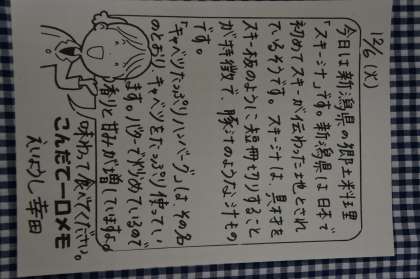 12/6(火)
今日は新潟県の郷土料理
「スキー汁」です。新潟県は日本で
初めてスキーが伝わった土地とされ
ているそうです。スキー汁は、具材を
スキー板のように短冊切りすること
が特徴で、豚汁のような汁もの
です。
「キャベツたっぷりハンバーグ」はその名
のとおり、キャベツをたっぷり使ってい
ます。バターで炒めているので
香りと甘みが増していますよ。
味わって食べてください。
こんだて一口メモ
えいようし 幸田